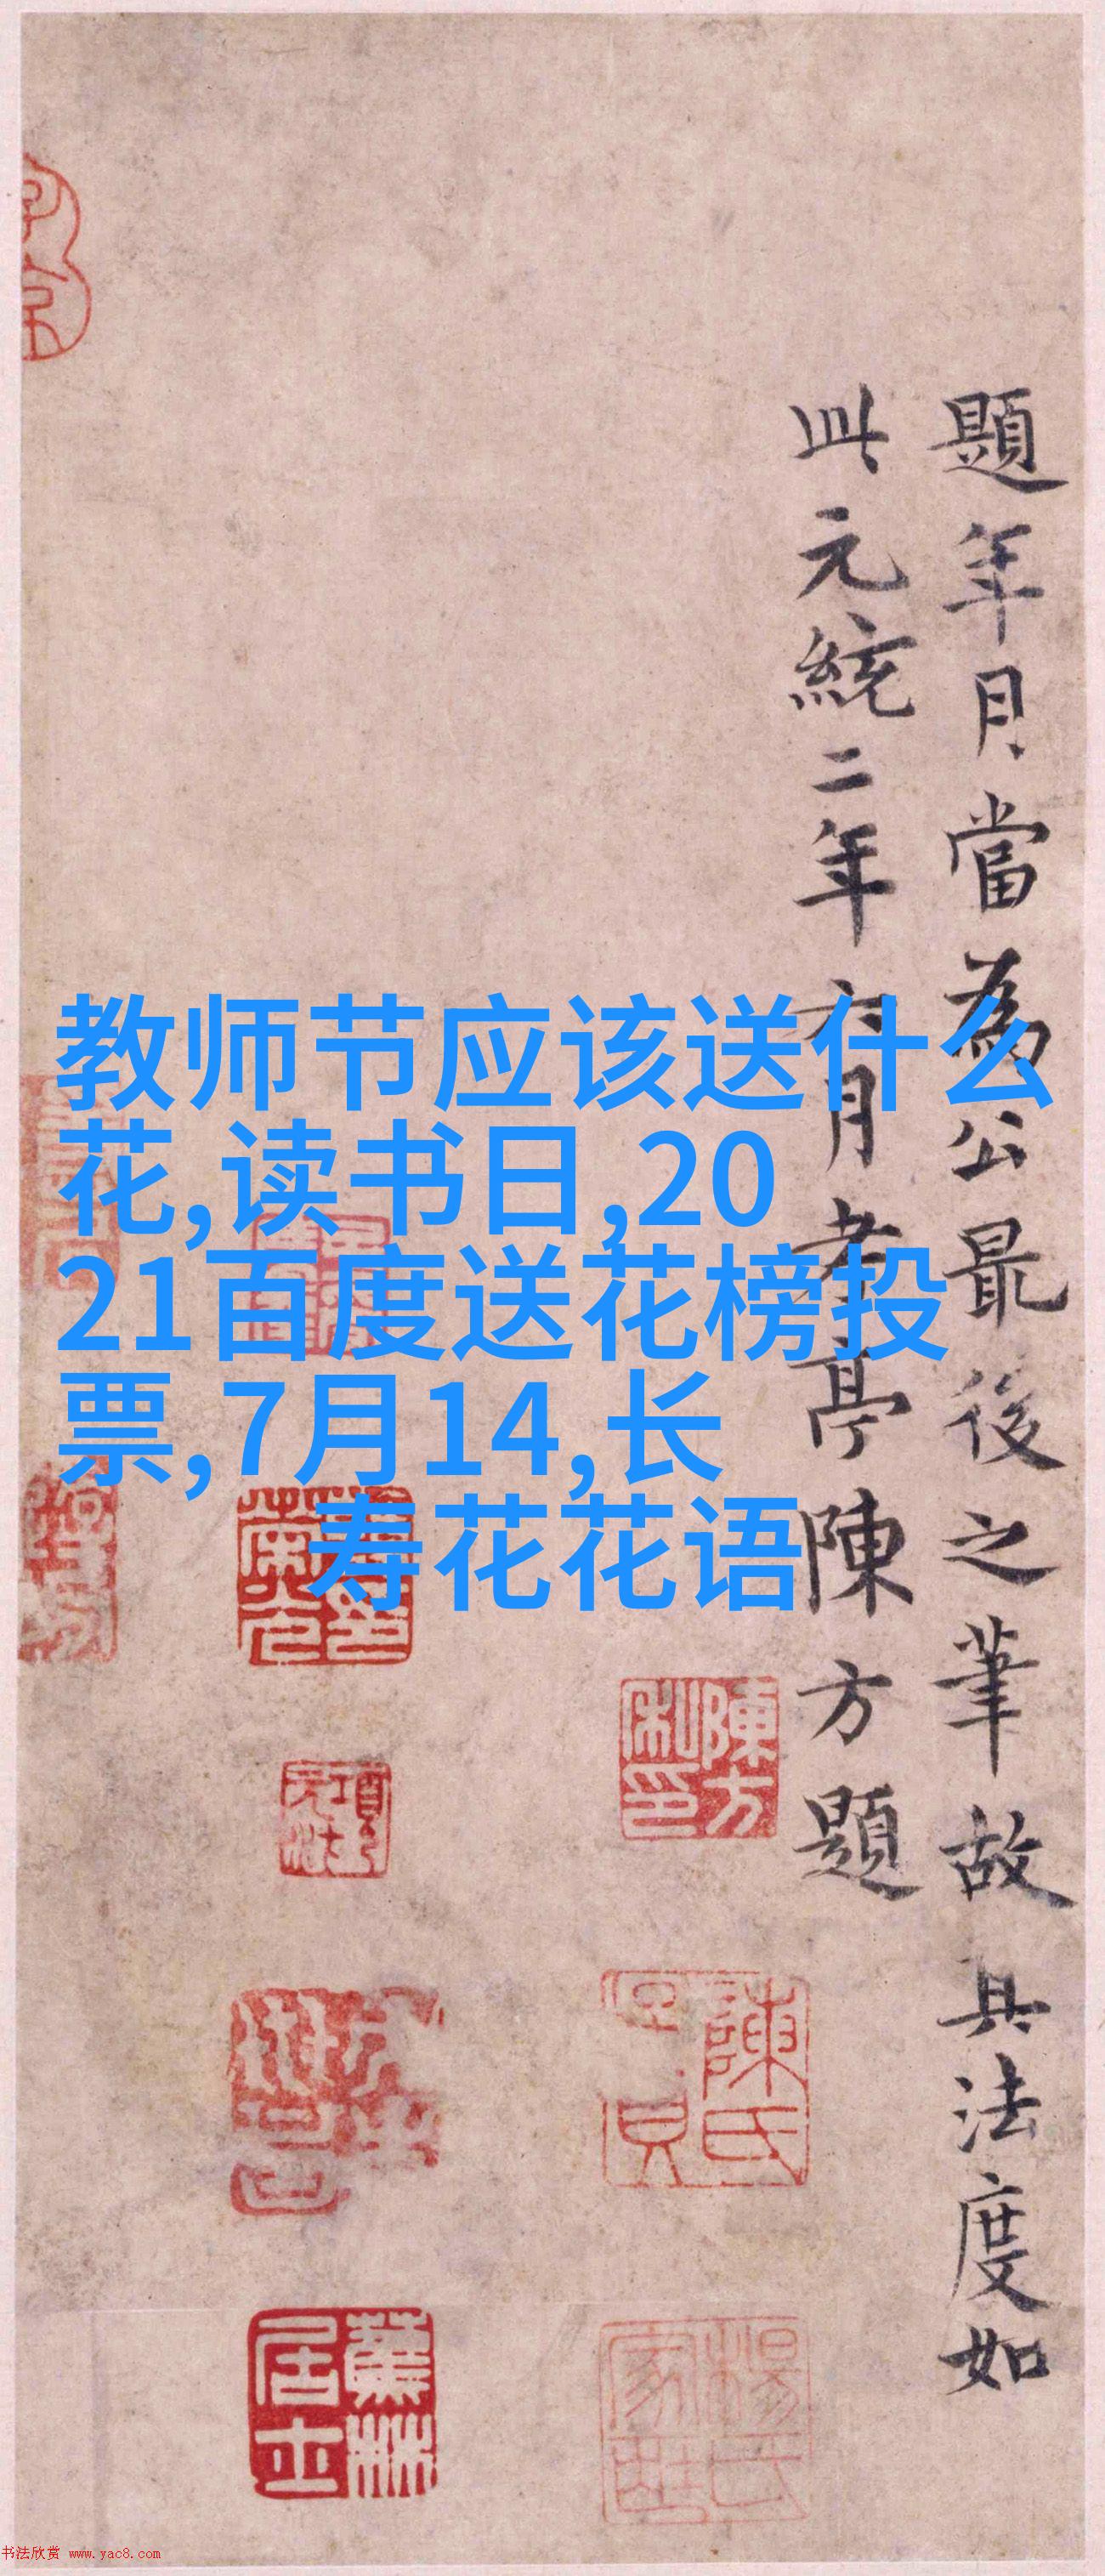 教师节应该送什么
花,读书日,20
21百度送花榜投
票,7月14,长
寿花花语
題年月當為公最後之筆故其法度如
此元統二年六月孝亭陳方題
陳方私印
蕉林居士
书法欣赏 www.yac8.com